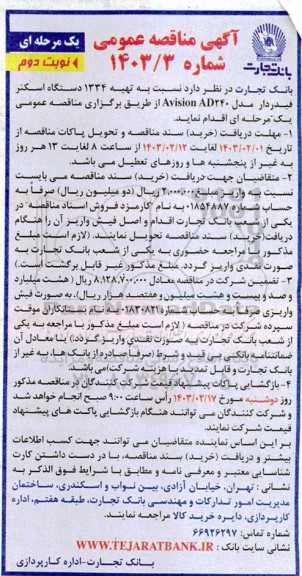 آگهی مناقصه عمومی
شماره ۱۴۰۳/۳
یک مرحله ای
نوبت دوم
بانک تجارت
بانک تجارت در نظر دارد نسبت به تهیه ۱۳۳۴ دستگاه اسکنر
فیدردار مدل Avision AD۲۴۰ از طریق برگزاری مناقصه عمومی
یک مرحله ای اقدام نماید.
۱- مهلت دریافت (خرید) سند مناقصه و تحویل پاکات مناقصه از
تاریخ ۱۴۰۳/۰۲/۰۱ لغایت ۱۴۰۳/۰۲/۱۲ از ساعت ۸ لغایت ۱۳ هر روز
به غیر از پنجشنبه ها و روزهای تعطیل می باشد.
۲- متقاضیان جهت دریافت (خرید) سند مناقصه می بایست
نسبت به واریز ۲,۰۰۰,۰۰۰ ریال (دو میلیون ریال) صرفاً به
حساب شماره ۰۱۸۵۴۸۸۷ به نام "کارمزد فروش اسناد مناقصه" در
یکی از شعب بانک تجارت اقدام و اصل فیش واریز آن را هنگام
دریافت(خرید) سند مناقصه تحویل نمایند. (لازم است مبلغ
مذکور با مراجعه حضوری به یکی از شعب بانک تجارت به
صورت نقدی واریز گردد. مبلغ مذکور غیر قابل برگشت است.)
۳- تضمین شرکت در مناقصه معادل ۸,۱۲۸,۷۰۰,۰۰۰ ریال (هشت میلیارد
و صد و بیست و هشت میلیون و هفتصد هزار ریال)، به صورت فیش
واریزی صرفاً به حساب شماره ۰۱۸۳۰۸۲۱ به نام بستانکاران موقت
سپرده شرکت در مناقصه ( لازم است مبلغ مذکور با مراجعه به یکی
از شعب بانک تجارت به صورت نقدی واریز گردد.) یا معادل آن
ضمانتنامه بانکی بی قید و شرط (صرفاً صادره از بانک ها، به غیر از
بانک تجارت و قابل تمدید با هزینه شرکت)می باشد.
۴- بازگشایی پاکت پیشنهاد قیمت شرکت کنندگان در مناقصه مذکور
روز دوشنبه مورخ ۱۴۰۳/۰۲/۱۷ رأس ساعت ۹:۰۰ صبح انجام خواهد شد
و شرکت کنندگان می توانند هنگام بازگشایی پاکت های پیشنهاد
قیمت شرکت نمایند.
بر این اساس نماینده متقاضیان می توانند جهت کسب اطلاعات
بیشتر و دریافت (خرید) سند مناقصه، با در دست داشتن کارت
شناسایی معتبر و معرفی نامه و مطابق با شرایط فوق الذکر به
نشانی : تهران، خیابان آزادی، بین نواب و اسکندری، ساختمان
مدیریت امور تدارکات و مهندسی بانک تجارت، طبقه هفتم، اداره
کارپردازی، دایره خرید کالا مراجعه نمایند.
شماره تماس: ۶۶۹۲۶۲۹۷
نشانی سایت بانک : WWW.TEJARATBANK.IR
بانک تجارت-اداره کارپردازی